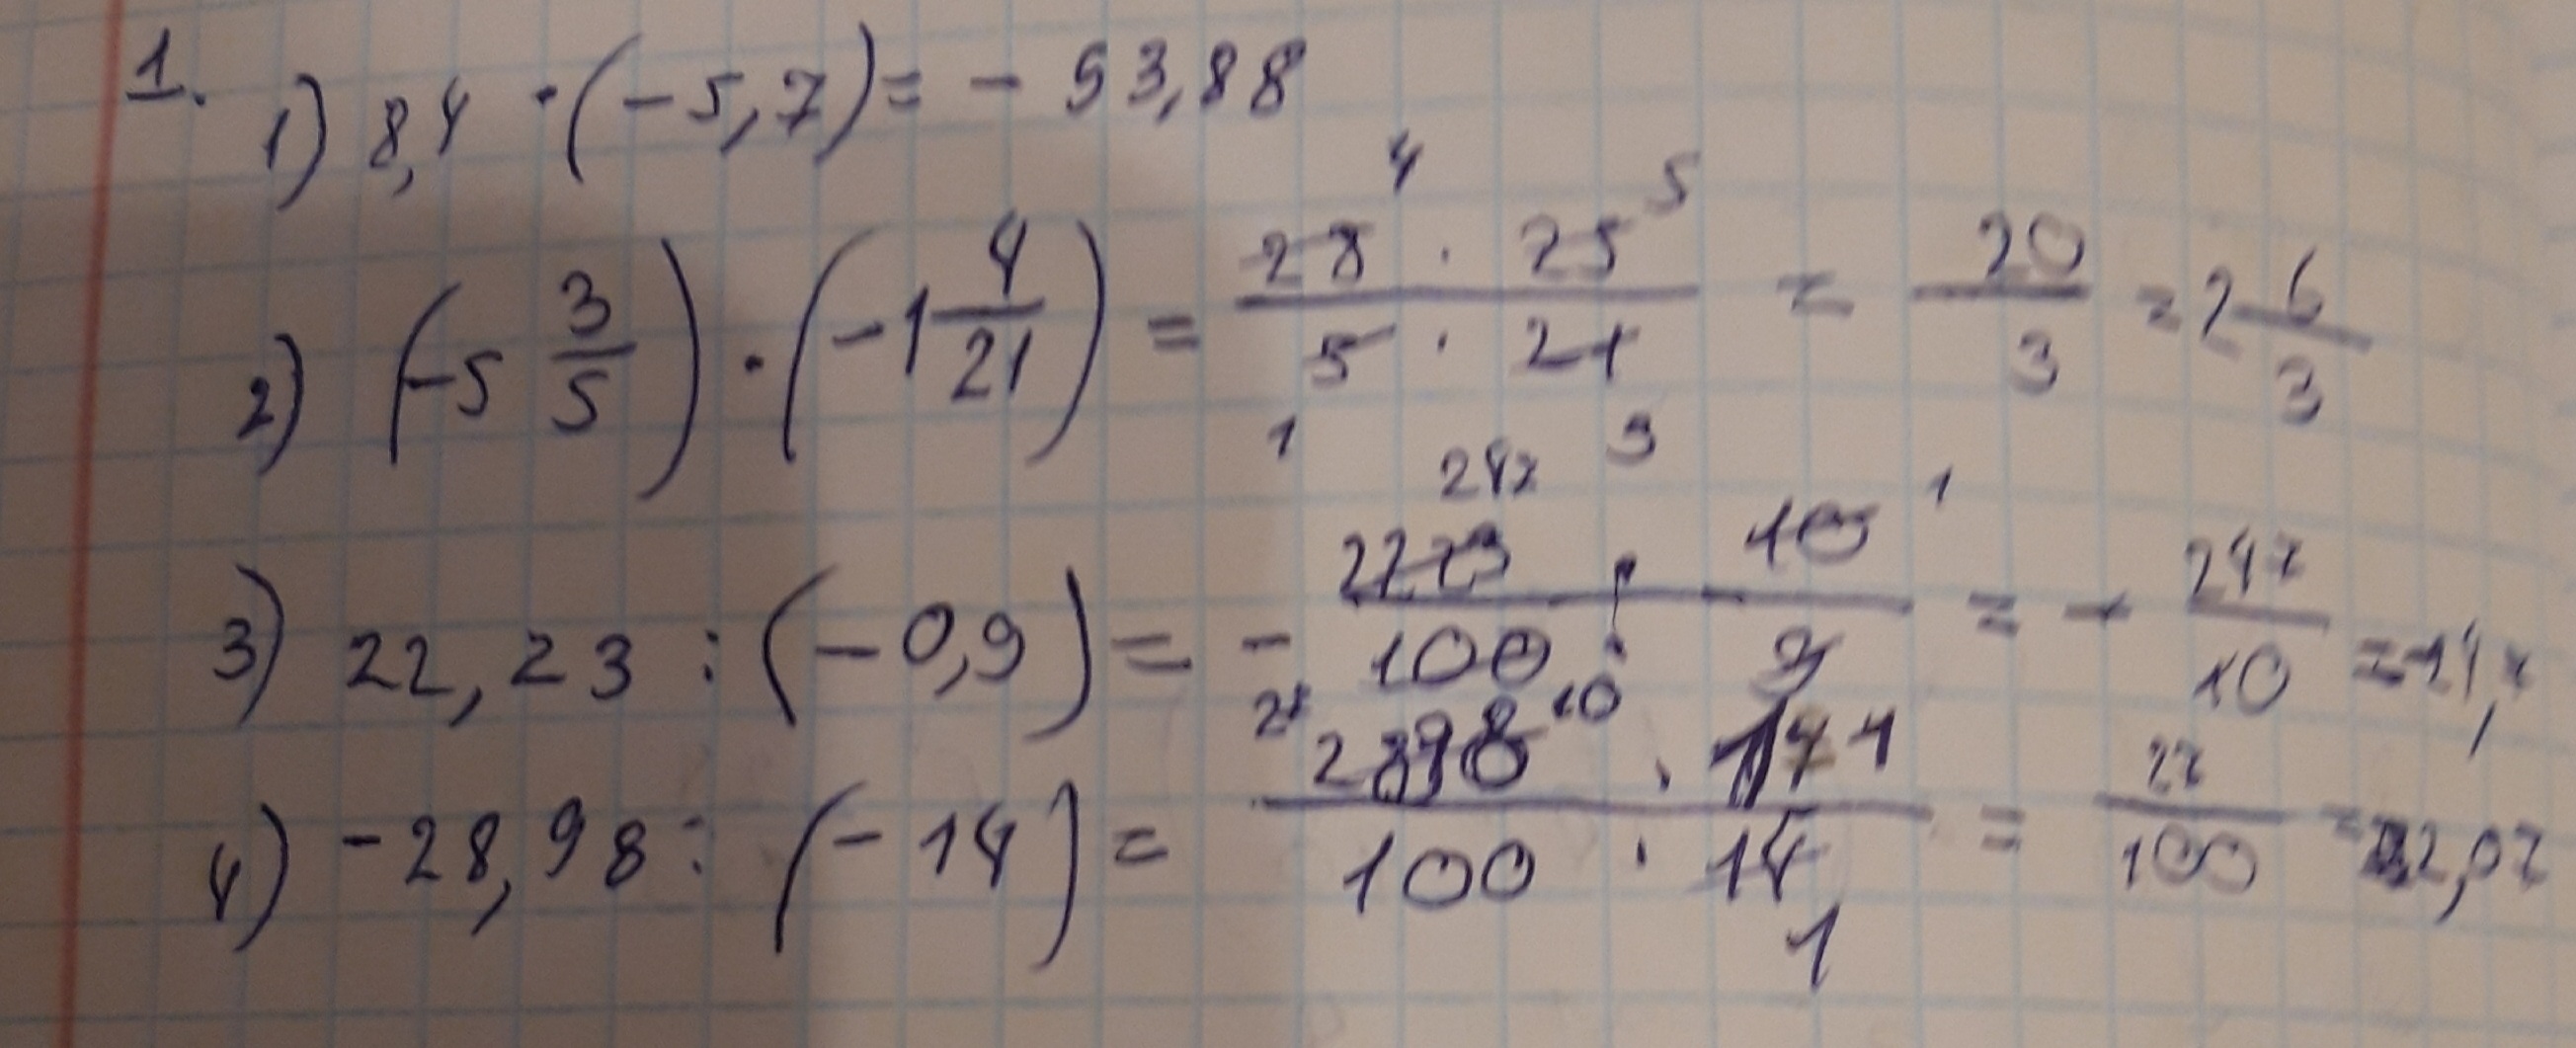 1. 1) 8,4 · (-5,7) = - 53,88
2) (-5 3/5) · (-1 4/21) = 28 4 · 25 5 / 5 1 · 21 3 = 20/3 = 2 6/3
3) 22,23 : (-0,9) = - 2223 247 · 10 1 / 100 10 · 9 = - 247/10 =
4) -28,98 : (-14) = 2898 · 1 / 100 · 14 1 = /100 = 2,07